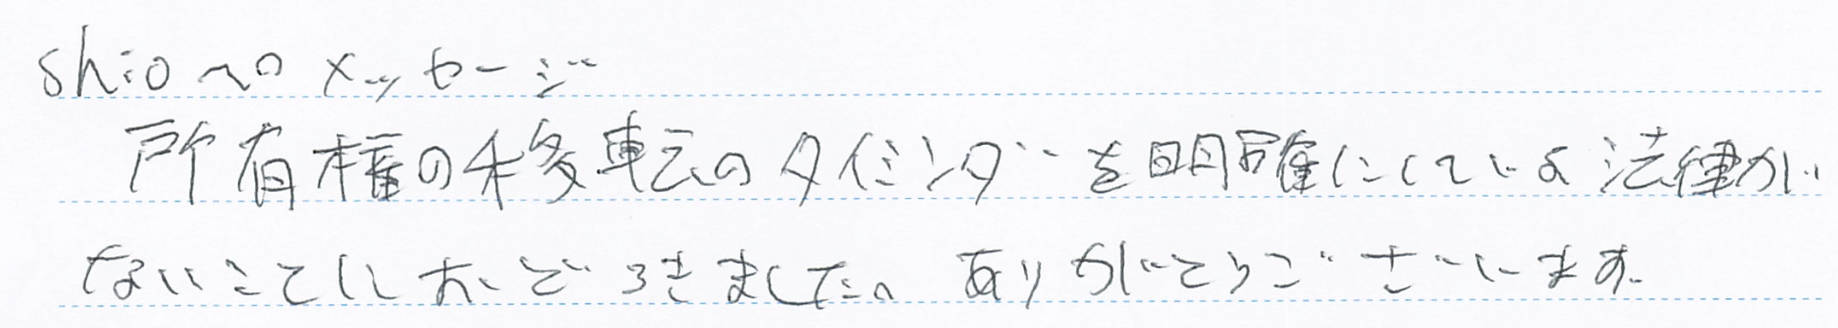 shioへのメッセージ
所有権の移転のタイミングを明確にしている法律が
ないことにおどろきました。ありがとうございます。